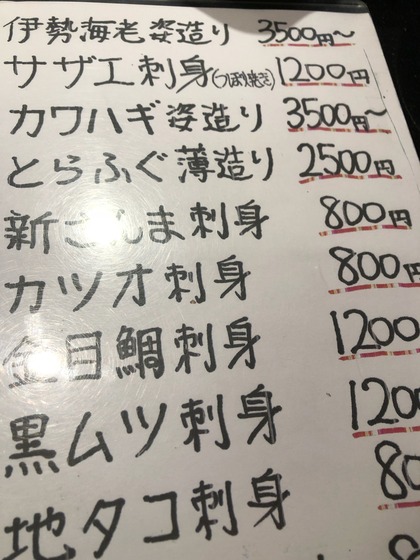 伊勢海老姿造り 3500円〜
サザエ刺身(つぼ焼き) 1200円
カワハギ姿造り 3500円〜
とらふぐ薄造り 2500円
新さんま刺身 800円
カツオ刺身 800円
金目鯛刺身 1200
黒ムツ刺身 1200
地タコ刺身 80